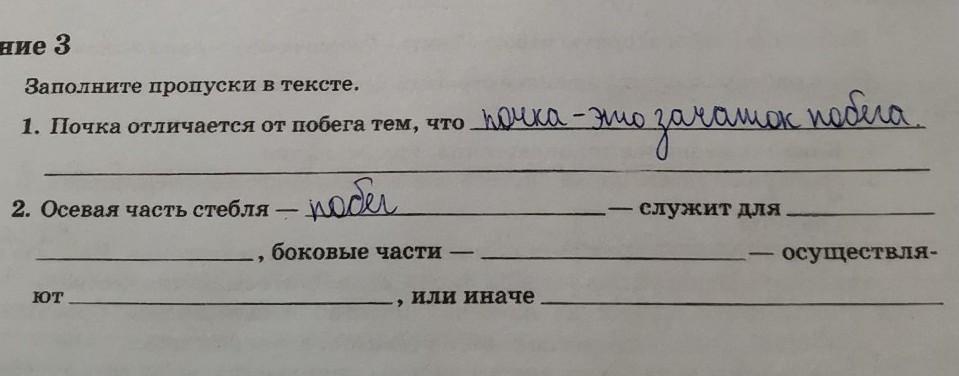 ние 3
Заполните пропуски в тексте.
1. Почка отличается от побега тем, что почка - это зачаток побега.
2. Осевая часть стебля — побег — служит для
, боковые части — — осуществля-
ют , или иначе